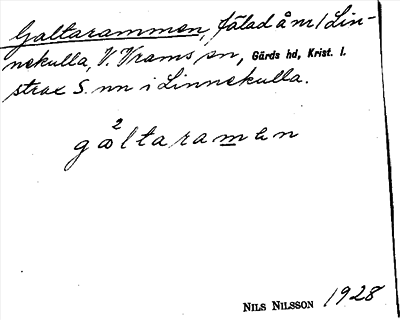 Galtarammen, fälad å n/ Lin-
nekulla, V. Vrams sn, Gärds hd, Krist. l.
strax S. nn i Linnekulla.
2
galtaramen
NILS NILSSON 1928